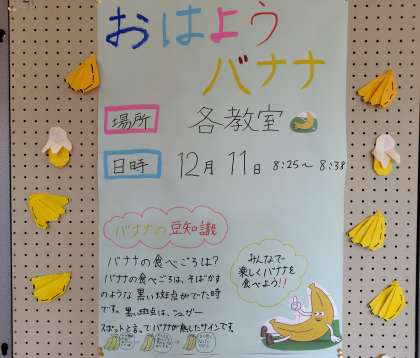 おはよう
バナナ
場所 各教室
日時 12月 11日 8:25〜 8:38
バナナの豆知識
バナナの食べごろは?
バナナの食べごろは、そばかす
のような 黒い斑点がでた時
です。 黒い斑点は、シュガー
スポットと言ってバナナが熟したサインです。
みんなで
楽しくバナナを
食べよう!!